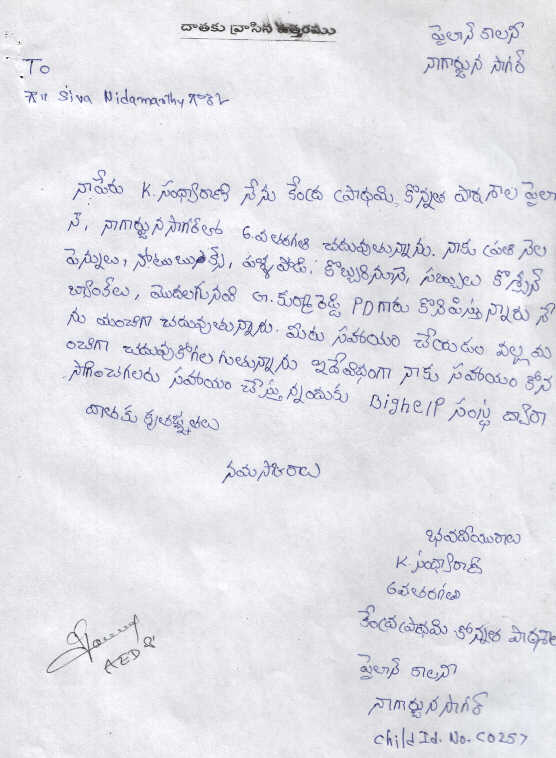 దాతకు వ్రాసిన ఉత్తరము
పైలాన్ కాలనీ
నాగార్జున సాగర్
To
శ్రీ Siva Nidamarthy గారికి
నాపేరు K. సంధ్యారాణి నేను కేంద్ర ప్రాథమి, కొన్నత పాఠశాల పైలా
న్, నాగార్జునసాగర్‌లో 6వతరగతి చదువుతున్నాను. నాకు ప్రతి నెల
పెన్నులు, నోటుబుక్స్, పళ్ళపొడి, కొబ్బరినూనె, సబ్బులు కొన్ని
మొదలగునవి కుర్మారెడ్డి PDగారు కొనిపిస్తున్నారు నే
ను మంచిగా చదువుతున్నాను. మీరు సహాయం చేయడం వల్ల మ
ంచిగా చదువుకోగలగుతున్నాను ఇదేవిధంగా నాకు సహాయం కొన
సాగించగలరు సహాయం చేస్తున్నందుకు Bighelp సంస్థ ద్వారా
దాతకు కృతజ్ఞతలు
నమస్కారాలు
భవదీయురాలు
K. సంధ్యారాణి
6వతరగతి
కేంద్రప్రాథమి కోన్నత పాఠశాల
పైలాన్ కాలనీ
నాగార్జునసాగర్
Child Id. No. C0257